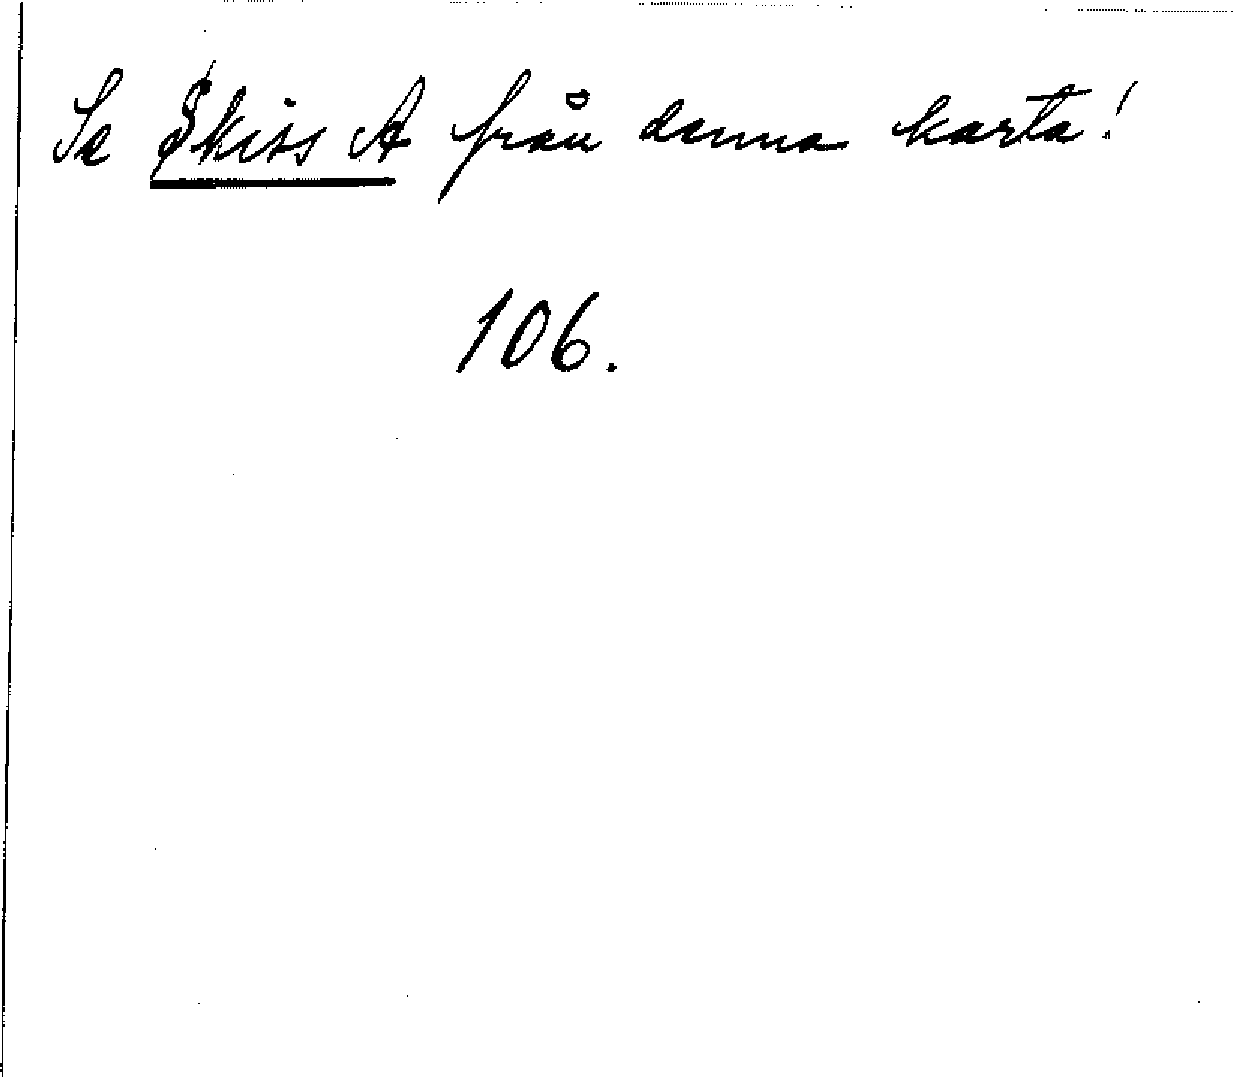 Se Skiss A från denna karta!
106.